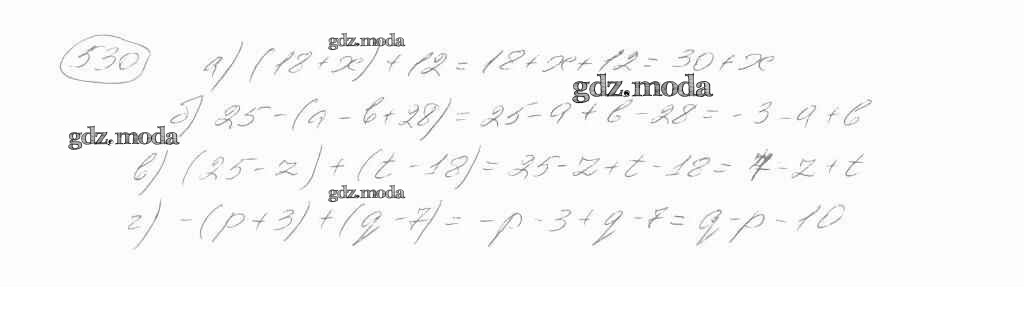 gdz.moda
530 а) (18+x)+12=18+x+12=30+x
gdz.moda
б) 25-(a-b+28)=25-a+b-28=-3-a+b
gdz.moda
в) (25-z)+(t-18)=25-z+t-18=7-z+t
gdz.moda
г) -(p+3)+(q-7)=-p-3+q-7=q-p-10